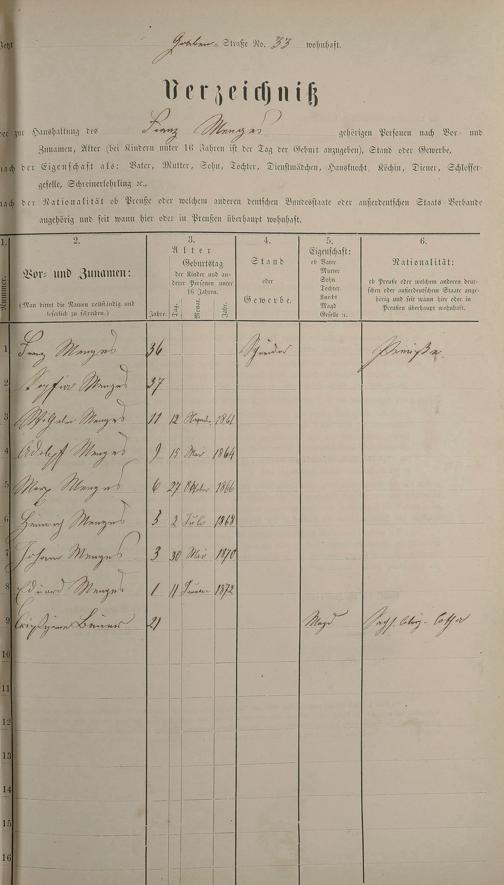 Jetzt Graben-Straße No. 33 wohnhaft.
Verzeichniß
der zur Haushaltung des Franz Menges gehörigen Personen nach Vor- und
Zunamen, Alter (bei Kindern unter 16 Jahren ist der Tag der Geburt anzugeben), Stand oder Gewerbe,
nach der Eigenschaft als: Vater, Mutter, Sohn, Tochter, Dienstmädchen, Hausknecht, Köchin, Diener, Schlosser-
geselle, Schreinerlehrling ec.,
nach der Nationalität ob Preuße oder welchem anderen deutschen Bundesstaate oder außerdeutschen Staats-Verbande
angehörig und seit wann hier oder in Preußen überhaupt wohnhaft.
1. 2. 3. 4. 5. 6.
Nummer.
Vor- und Zunamen:
(Man bittet die Namen vollständig und
leserlich zu schreiben.)
Alter
Geburtstag
der Kinder und an-
derer Personen unter
16 Jahren.
Jahre. Tag. Monat. Jahr.
Stand
oder
Gewerbe.
Eigenschaft:
ob Vater
Mutter
Sohn
Tochter
Knecht
Magd
Geselle ec.
Nationalität:
ob Preuße oder welchem anderen deut-
schen oder außerdeutschen Staate ange-
hörig und seit wann hier oder in
Preußen überhaupt wohnhaft.
1 Franz Menges 36 Preuße
2 Sophie Menges 37
3 Wilhelm Menges 11 12 1861
4 Adolf Menges 9 15 Mai 1864
5 Menges 6 27 Oktober 1866
6 Heinrich Menges 5 2 Juli 1868
7 Johann Menges 3 30 Mai 1870
8 Eduard Menges 1 11 1872
9 21 Magd Sachs. Cobg-Gotha
10
11
12
13
14
15
16